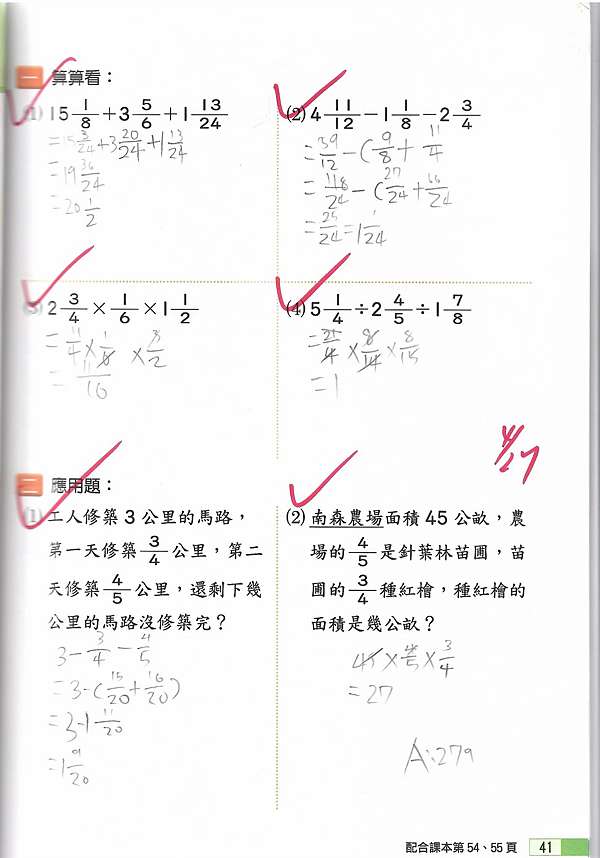 一 算算看：
(1) 15 1/8 + 3 5/6 + 1 13/24
= 15 3/24 + 3 20/24 + 1 13/24
= 19 36/24
= 20 1/2
(2) 4 11/12 − 1 1/8 − 2 3/4
= 59/12 − ( 9/8 + 11/4
= 118/24 − ( 27/24 + 66/24
= 25/24 = 1 1/24
(3) 2 3/4 × 1/6 × 1 1/2
= 11/4 × 1/6 × 3/2
= 11/16
(4) 5 1/4 ÷ 2 4/5 ÷ 1 7/8
= 21/4 × 8/14 × 8/15
= 1
4/27
二 應用題：
(1) 工人修築 3 公里的馬路，
第一天修築 3/4 公里，第二
天修築 4/5 公里，還剩下幾
公里的馬路沒修築完？
3 - 3/4 - 4/5
= 3 - ( 15/20 + 16/20 )
= 3 - 1 11/20
= 1 9/20
(2) 南森農場面積 45 公畝，農
場的 4/5 是針葉林苗圃，苗
圃的 3/4 種紅檜，種紅檜的
面積是幾公畝？
45 × 4/5 × 3/4
= 27
A:27a
配合課本第 54、55 頁 41